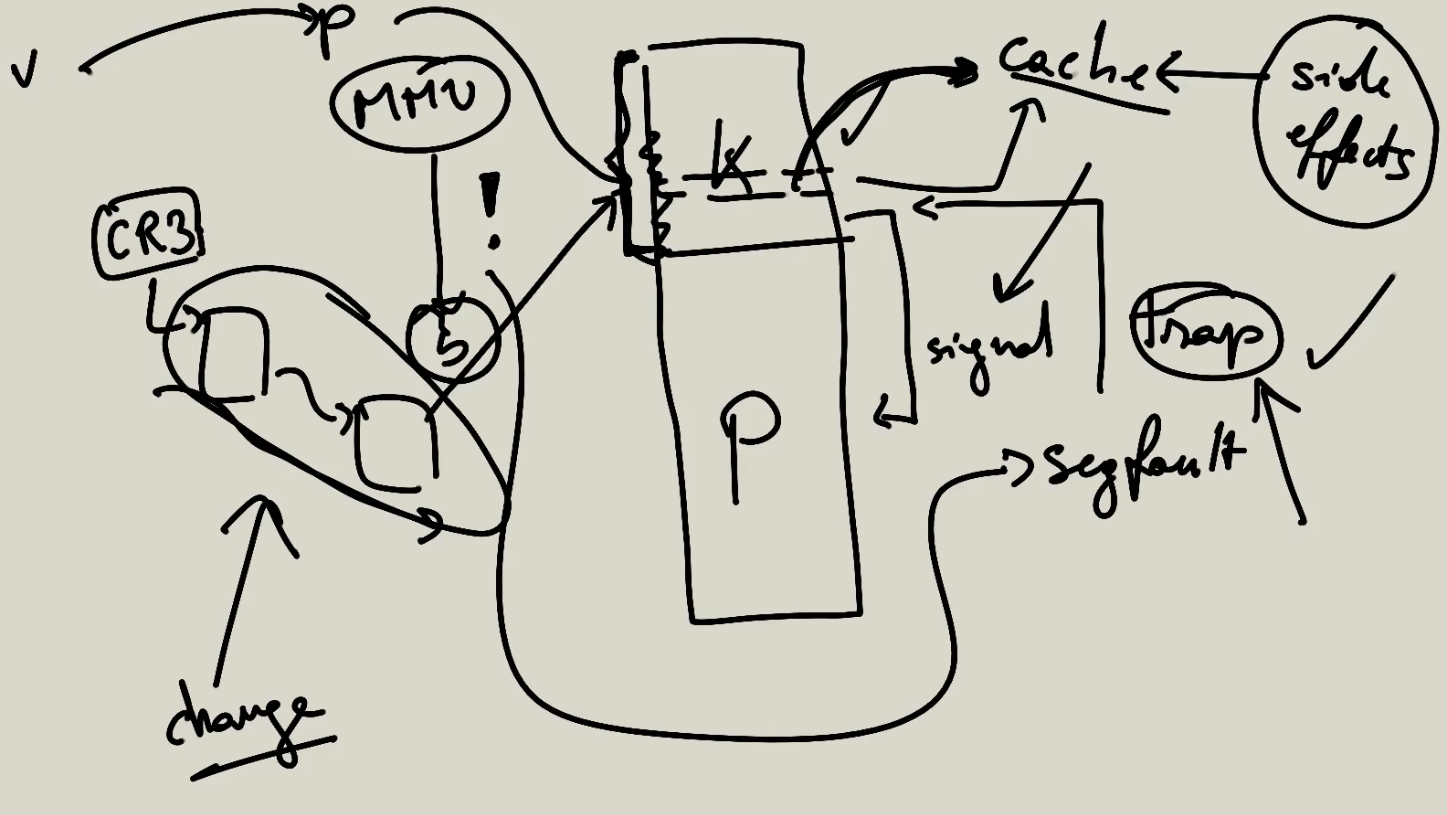 v
p
MMU
CR3
!
5
K
P
cache
side
effects
signal
trap
segfault
change